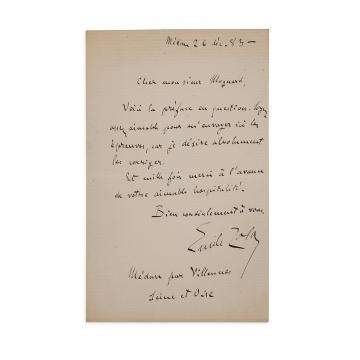 Médan 26 déc. 83 –
Cher monsieur Magnard,
Voici la préface en question. Soyez
assez aimable pour m'envoyer ici les
épreuves, car je désire absolument
les corriger.
Et mille fois merci à l'avance
de votre aimable hospitalité.
Bien cordialement à vous
Emile Zola
Médan par Villennes
Seine et Oise